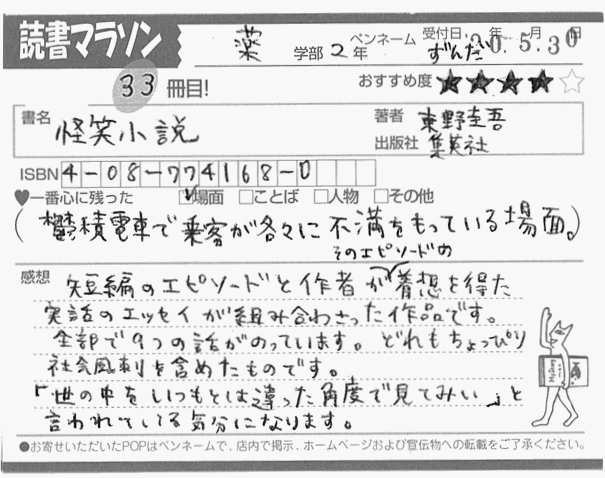 読書マラソン
薬 学部 2 年 ペンネーム ずんだ 受付日 20年5月30日
33 冊目!
おすすめ度 ★★★★☆
書名 怪笑小説
著者 東野圭吾
出版社 集英社
ISBN 4-08-774168-0
♥一番心に残った ☑場面 □ことば □人物 □その他
(鬱積電車で乗客が各々に不満をもっている場面。)
そのエピソードの
感想 短編のエピソードと作者が着想を得た
実話のエッセイが組み合わさった作品です。
全部で9つの話がのっています。どれもちょっぴり
社会風刺を含めたものです。
「世の中をいつもとは違った角度で見てみい」と
言われている気分になります。
●お寄せいただいたPOPはペンネームで、店内で掲示、ホームページおよび宣伝物への転載をご了承ください。